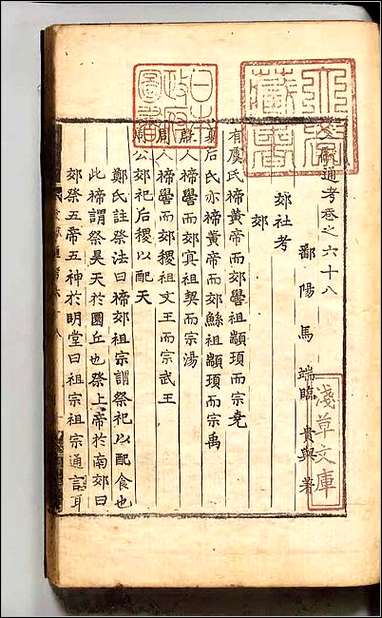 文獻通考卷之六十八
鄱陽馬端臨貴與著
郊社考
郊
有虞氏禘黃帝而郊嚳祖顓頊而宗堯
夏后氏亦禘黃帝而郊鯀祖顓頊而宗禹
殷人禘嚳而郊冥祖契而宗湯
周人禘嚳而郊稷祖文王而宗武王
周公郊祀后稷以配天
鄭氏註祭法曰禘郊祖宗謂祭祀以配食也
此禘謂祭昊天於圜丘也祭上帝於南郊曰
郊祭五帝五神於明堂曰祖宗祖宗通言耳
日本
政府
圖書
淺草文庫